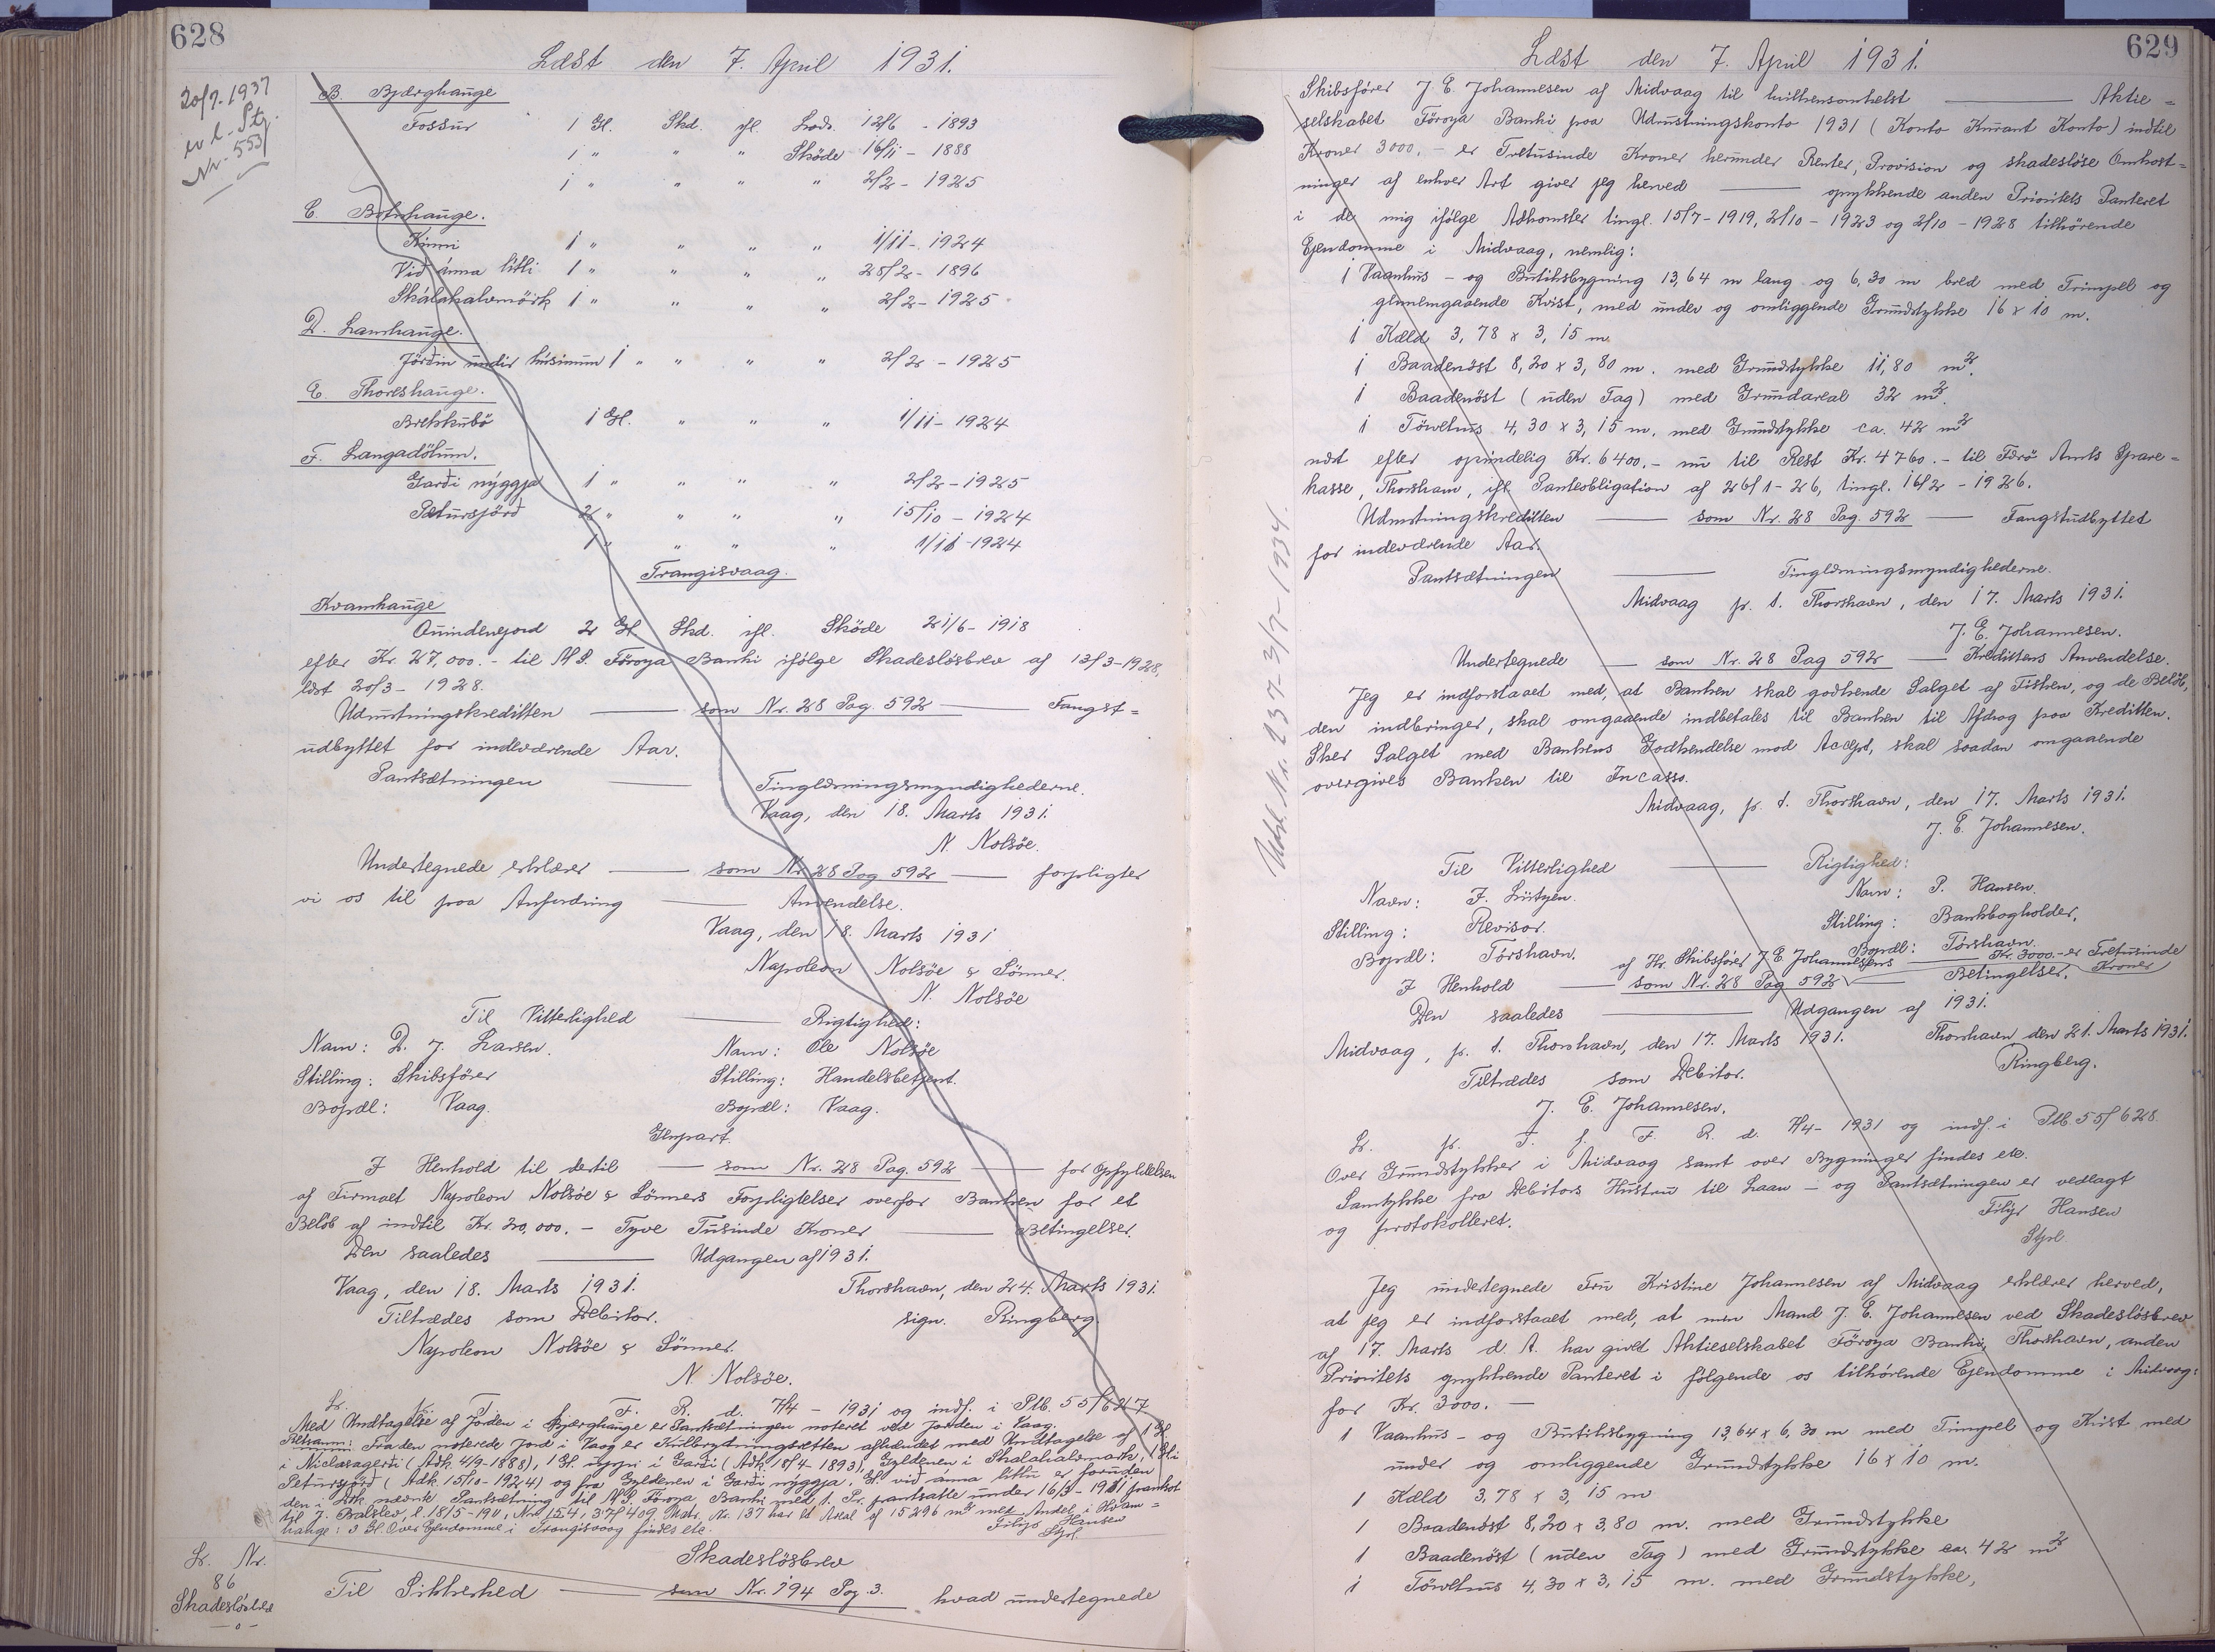 628
Læst den 7. April 1931.
20/7-1937
ev l. Stj.
Nr. 553
B. Bjærghauge
Fossur 1 Gl. Skd. ifl. Lods. 12/6 - 1893
1 " " " Sköde 16/11 - 1888
1 " " " " 2/2 - 1925
C. Botnhauge.
Kinni 1 " " " " 1/11 - 1924
Við ánna lítli 1 " " " " 28/2 - 1896
Skálahalvmörk 1 " " " " 2/2 - 1925
D. Lamhauge.
Jörðin undir húsinum 1 " " " " 2/2 - 1925
E. Thoreshauge.
Brekkubö 1 Gl. " " " 1/11 - 1924
F. Langadölum.
Garði nýggja 1 " " " " 2/2 - 1925
Pætursjörð 2 " " " " 15/10 - 1924
1 " " " " 1/11 - 1924
Trangisvaag.
Kvamhauge
Quindenejord 2 Gl. Skd. ifl. Sköde 21/6 - 1918
efter Kr. 27,000.- til A/S. Föroya Banki ifölge Skadeslösbrev af 13/3-1928,
læst 20/3 - 1928.
Udrustningskreditten —— som Nr. 28 Pag. 592 —— Fangst=
udbyttet for indeværende Aar.
Pantsætningen —— Tinglæsningsmyndighederne.
Vaag, den 18. Marts 1931.
N. Nolsöe.
Undertegnede erklærer —— som Nr. 28 Pag 592 —— forpligter
vi os til paa Anfordring —— Anvendelse.
Vaag, den 18. Marts 1931
Napoleon Nolsöe & Sönner.
N. Nolsöe
Til Vitterlighed —— Rigtighed:
Navn: D. J. Larsen. Navn: Ole Nolsöe
Stilling: Skibsförer Stilling: Handelsbetjent.
Bopæl: Vaag. Bopæl: Vaag.
Genpart.
I Henhold til dertil —— som Nr. 28 Pag. 592 —— for Opfyldelsen
af Firmaet Napoleon Nolsöe & Sönners Forpligtelser overfor Banken for et
Belöb af indtil Kr. 20,000.- Tyve Tusinde Kroner —— Betingelser.
Den saaledes —— Udgangen af 1931.
Vaag, den 18. Marts 1931. Thorshavn, den 24. Marts 1931.
Tiltrædes som Debitor. sign. Ringberg
Napoleon Nolsöe & Sönner.
N. Nolsöe.
L. p. T. f. F. R. d. 7/4 - 1931 og indf. i Ptb. 55/627
Med Undtagelse af Jorden i Bjærghauge er Pantsætningen noteret ved Jorden i Vaag.
Retsanm: Fra den noterede Jord i Vaag er Kulbrydningsretten afhændet med Undtagelse af 1 Gl.
i Niclasagerði (Adk. 4/9-1888), 1 Gl. uppi í Garði (Adk. 18/4-1893), Gyldenen i Skalahalvmark, 1 Gl. i
Petursjörð (Adk. 15/10-1924) og fra Gyldenen i Garði nýggja. Gl. við ánna litlu er foruden
den i Dok. nævnte Pantsætning til A/S. Föroya Banki med 1. Pr. pantsat under 16/3-1911 frankot
til J. Balslev, l. 18/5-1911, Nr. 154, 37/409. Matr. Nr. 137 har et Areal af 15296 m² med Andel i Hvam=
hauge: 3 Gl. Over Ejendomme i Trangisvaag findes ete. Filip Hansen
Stpl.
L. Nr.
86
Skadeslösbrev
Skadeslösbrev
Til Sikkerhed —— som Nr. 194 Pag. 3. hvad undertegnede
629
Læst den 7. April 1931.
Skibsförer J. E. Johannesen af Midvaag til hvilkensomhelst —— Aktie=
selskabet Föroya Banki paa Udrustningskonto 1931 (Konto Kurant Konto) indtil
Kroner 3000.- er Tretusinde Kroner herunder Renter, Provision og skadeslöse Omkost=
ninger af enhver Art giver jeg herved —— oprykkende anden Prioritets Panteret
i de mig ifölge Adkomster tingl. 15/7-1919, 2/10-1923 og 2/10-1928 tilhörende
Ejendomme i Midvaag, nemlig:
1 Vaanhus- og Butiksbygning 13,64 m lang og 6,30 m bred med Trimpel og
gennemgaaende Kvist, med under og omliggende Grundstykke 16 x 10 m.
1 Kæld 3,78 x 3,15 m.
1 Baadenöst 8,20 x 3,80 m. med Grundstykke 11,80 m².
1 Baadenöst (uden Tag) med Grundareal 32 m².
1 Törvehus 4,30 x 3,15 m. med Grundstykke ca. 42 m²
næst efter oprindelig Kr. 6400.- nu til Rest Kr. 4760.- til Færö Amts Spare=
kasse, Thorshavn, ifl. Panteobligation af 26/1-26, tingl. 16/2-1926.
Udrustningskreditten —— som Nr. 28 Pag. 592 —— Fangstudbyttet
for indeværende Aar.
Pantsætningen —— Tinglæsningsmyndighederne.
Midvaag p. t. Thorshavn, den 17. Marts 1931.
J. E. Johannesen.
Undertegnede —— som Nr. 28 Pag 592 —— Kredittens Anvendelse.
Jeg er indforstaaet med, at Banken skal godkende Salget af Fisken, og de Belöb,
den indbringer, skal omgaaende indbetales til Banken til Afdrag paa Kreditten.
Sker Salget med Bankens Godkendelse mod Accept, skal saadan omgaaende
overgives Banken til Incasso.
Midvaag, p. t. Thorshavn, den 17. Marts 1931.
J. E. Johannesen.
Udsl. Nr. 237-3/7-1934.
Til Vitterlighed —— Rigtighed:
Navn: J. Lützen. Navn: P. Hansen.
Stilling: Revisor. Stilling: Bankbogholder.
Bopæl: Tórshavn. Bopæl: Tórshavn.
af Hr. Skibsförer J. E. Johannesens —— Kr. 3000.- er Tretusinde Kroner
I Henhold —— som Nr. 28 Pag 592 —— Betingelser.
Den saaledes —— Udgangen af 1931.
Midvaag, p. t. Thorshavn, den 17. Marts 1931. Thorshavn den 21. Marts 1931.
Tiltrædes som Debitor. Ringberg.
J. E. Johannesen.
L. p. T. f. F. R. d. 7/4-1931 og indf. i Ptb. 55/628.
Over Grundstykker i Midvaag samt over Bygninger findes ete.
Samtykke fra Debitors Hustru til Laan- og Pantsætningen er vedlagt
og protokolleret. Filip Hansen
Stpl.
Jeg undertegnede Fru Kristine Johannesen af Midvaag erklærer herved,
at jeg er indforstaaet med, at min Mand J. E. Johannesen ved Skadeslösbrev
af 17. Marts d. A. har givet Aktieselskabet Föroya Banki, Thorshavn, anden
Prioritets oprykkende Panteret i fölgende os tilhörende Ejendomme i Midvaag:
for Kr. 3000.—
1 Vaanhus- og Butiksbygning 13,64 x 6,30 m med Trimpel og Kvist med
under og omliggende Grundstykke 16 x 10 m.
1 Kæld 3,78 x 3,15 m
1 Baadenöst 8,20 x 3,80 m. med Grundstykke
1 Baadenöst (uden Tag) med Grundstykke ca. 42 m²
1 Törvehus 4,30 x 3,15 m. med Grundstykke,